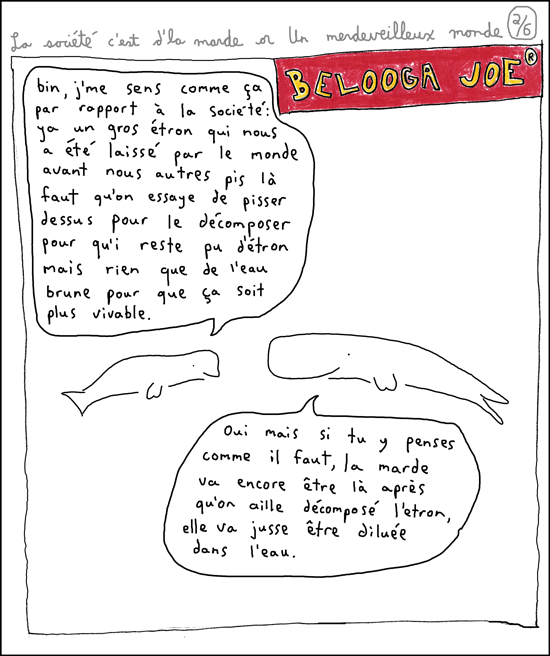 La société c'est d'la marde or Un merdeveilleux monde 2/6
BELOOGA JOE ®
bin, j'me sens comme ça
par rapport à la société:
ya un gros étron qui nous
a été laissé par le monde
avant nous autres pis là
faut qu'on essaye de pisser
dessus pour le décomposer
pour qu'i reste pu d'étron
mais rien que de l'eau
brune pour que ça soit
plus vivable.
Oui mais si tu y penses
comme il faut, la marde
va encore être là après
qu'on aille décomposé l'etron,
elle va jusse être diluée
dans l'eau.